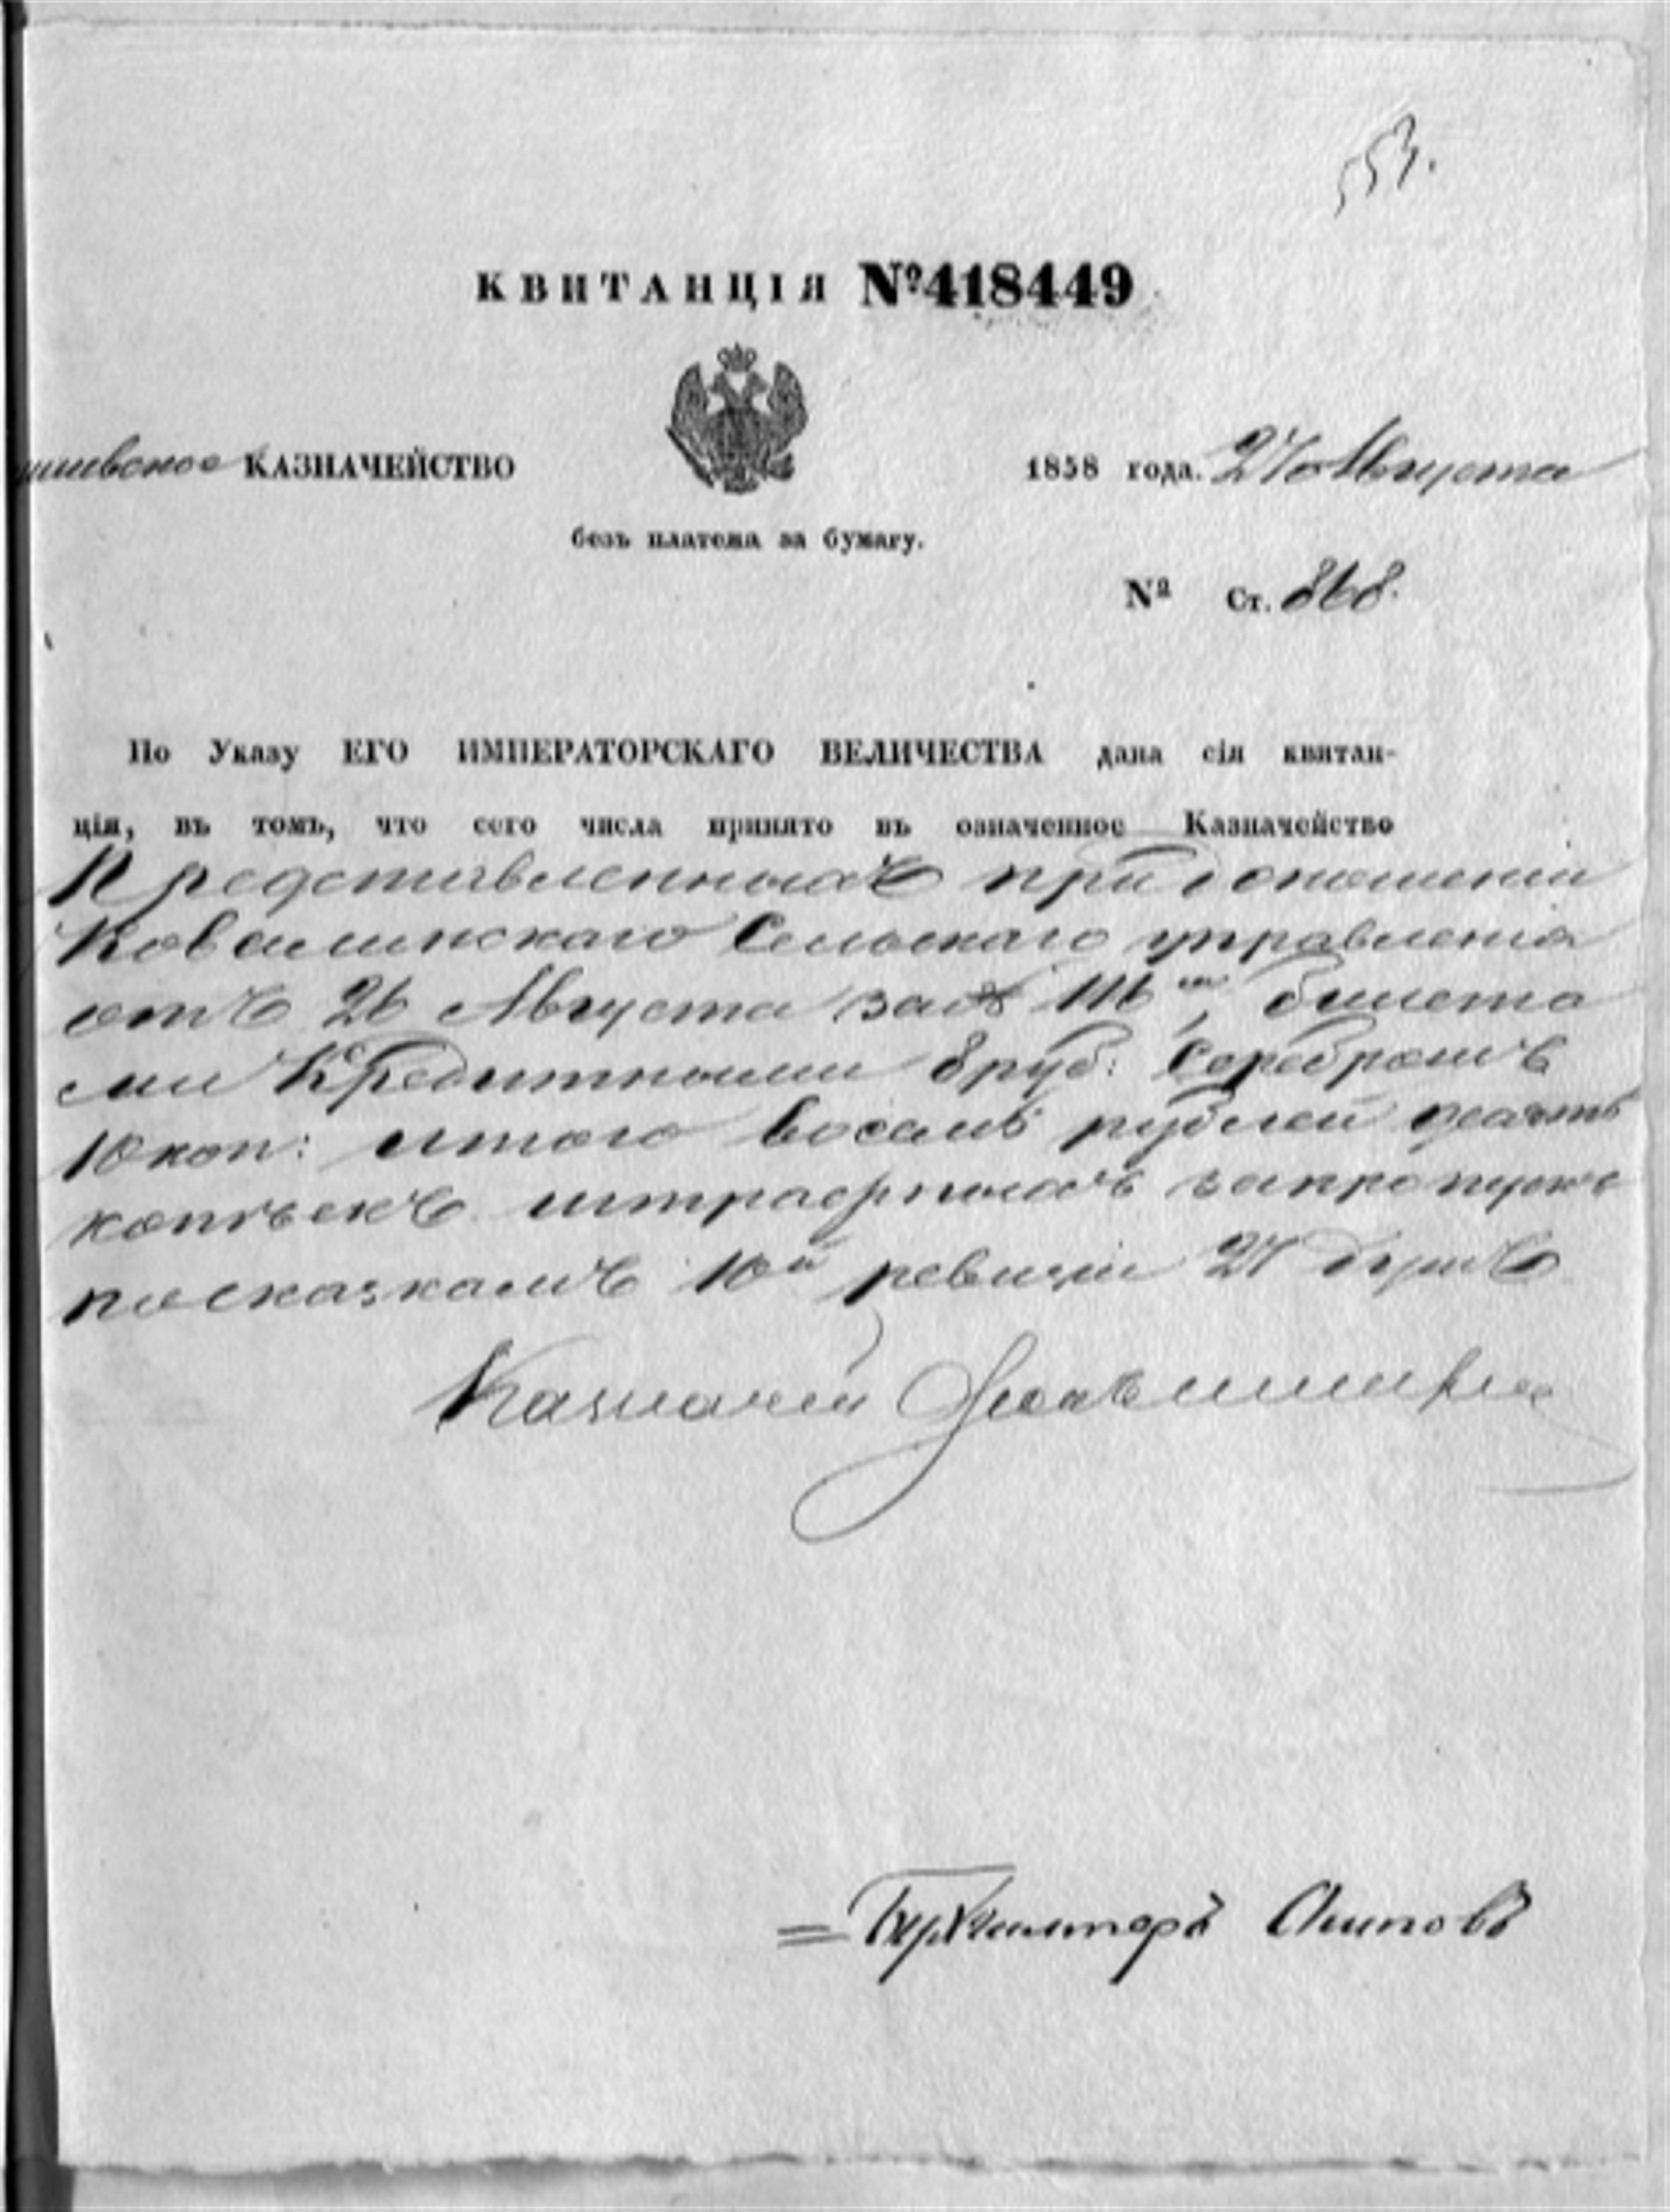 553.
КВИТАНЦІЯ №418449
КАЗНАЧЕЙСТВО 1858 года. 27 Августа
безъ платежа за бумагу.
№ Ст. 868.
По Указу ЕГО ИМПЕРАТОРСКАГО ВЕЛИЧЕСТВА дана сія квитан-
ція, въ томъ, что сего числа принято въ означенное Казначейство
Представленныхъ при доношеніи
Сельскаго управленія
отъ 26 Августа за № 116, билета
ми Кредитными 8 руб: Серебромъ
10 коп: итого восемь рублей десять
копѣекъ штрафныхъ за пропускъ
по сказкамъ 10й ревизіи 27 душъ
Казначей
Бухгалтеръ Осиповъ